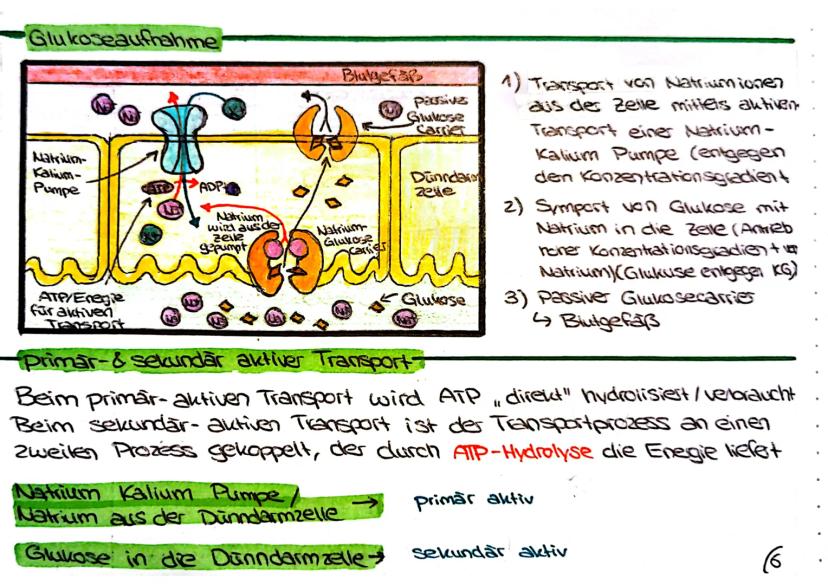 Glukoseaufnahme
Blutgefäß
Na+
Na+
Na+
passive
Glukose
carrier
Natrium-
Kalium-
Pumpe
ATP
ADP+
Na+
Dünndarm
zelle
Natrium
wird aus der
zelle
gepumpt
Natrium-
Glukose
carrier
ATP/Energie
für aktiven
Transport
Glukose
Na+
Na+
Na+
Na+
Na+
Na+
1) Transport von Natriumionen
aus der Zelle mittels aktiven
Transport einer Natrium-
Kalium Pumpe (entgegen
den Konzentrationsgradient
2) Symport von Glukose mit
Natrium in die Zelle (Antrieb
hoher Konzentrationsgradient
Natrium)(Glukose entgegen KG)
3) Passiver Glukosecarrier
↳ Blutgefäß
primär- & sekundär aktiver Transport
Beim primär-aktiven Transport wird ATP „direkt" hydrolisiert/verbraucht
Beim sekundär-aktiven Transport ist der Transportprozess an einen
zweiten Prozess gekoppelt, der durch ATP-Hydrolyse die Energie liefert
Natrium Kalium Pumpe/
Natrium aus der Dünndarmzelle → primär aktiv
Glukose in die Dünndarmzelle → sekundär aktiv
6